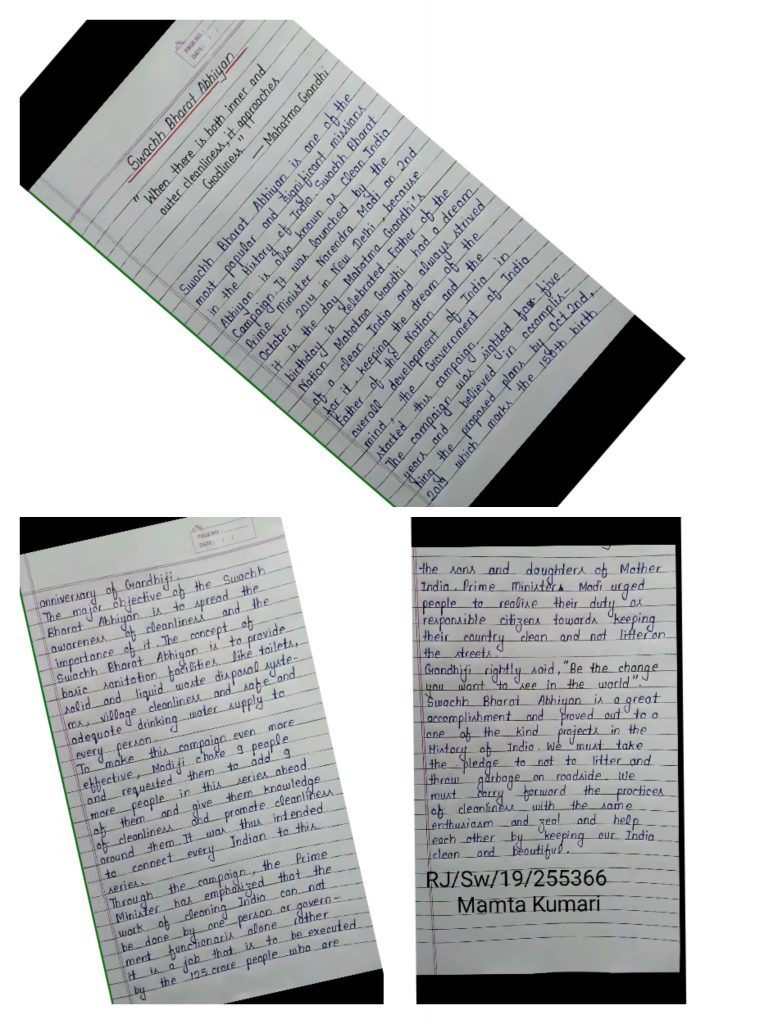 PAGE NO.:
DATE: / /
Swachh Bharat Abhiyan
"When there is both inner and
outer cleanliness, it approaches
Godliness."
— Mahatma Gandhi
Swachh Bharat Abhiyan is one of the
most popular and significant missions
in the History of India. Swachh Bharat
Abhiyan is also known as Clean India
Campaign. It was launched by the
Prime Minister Narendra Modi on 2nd
October 2014 in New Delhi, because
it is the day Mahatma Gandhi's
birthday is celebrated Father of the
Nation Mahatma Gandhi had a dream
of a clean India and always strived
for it, keeping the dream of the
Father of the Nation and the
overall development of India in
mind, the Government of India
started this campaign.
The campaign was sighted for five
years and believed in accomplis-
hing the proposed plans by Oct 2nd,
2019 which marks the 150th birth
PAGE NO.:
DATE: / /
anniversary of Gandhiji.
The major objective of the Swachh
Bharat Abhiyan is to spread the
awareness of cleanliness and the
importance of it. The concept of
Swachh Bharat Abhiyan is to provide
basic sanitation facilities like toilets,
solid and liquid waste disposal syste-
ms, village cleanliness and safe and
adequate drinking water supply to
every person.
To make this campaign even more
effective, Modiji chose 9 people
and requested them to add 9
more people in this series ahead
of them and give them knowledge
of cleanliness and promote cleanliness
around them. It was thus intended
to connect every Indian to this
series.
Through the campaign, the Prime
Minister has emphasized that the
work of cleaning India can not
be done by one person or govern-
ment functionaris alone rather
it is a job that is to be executed
by the 125 crore people who are
the sons and daughters of Mother
India. Prime Ministers Modi urged
people to realise their duty as
responsible citizens towards keeping
their country clean and not litter on
the streets.
Gandhiji rightly said, "Be the change
you want to see in the world".
Swachh Bharat Abhiyan is a great
accomplishment and proved out to a
one of the kind projects in the
History of India. We must take
the pledge to not to litter and
throw garbage on roadside. We
must carry forward the practices
of cleanliness with the same
enthusiasm and zeal and help
each other by keeping our India
clean and beautiful.
RJ/Sw/19/255366
Mamta Kumari